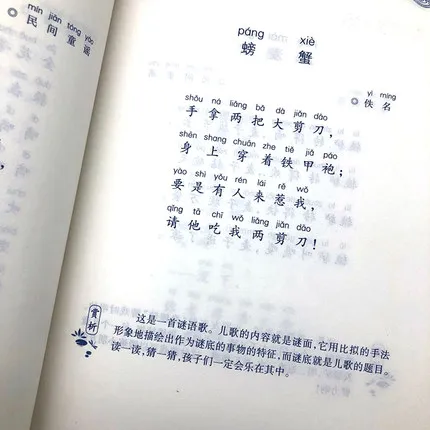 mín jiān tóng yáo
民间童谣
páng xiè
螃蟹
yì míng
佚名
shǒu ná liǎng bǎ dà jiǎn dāo
手拿两把大剪刀，
shēn shang chuān zhe tiě jiǎ páo
身上穿着铁甲袍；
yào shì yǒu rén lái rě wǒ
要是有人来惹我，
qǐng tā chī wǒ liǎng jiǎn dāo
请他吃我两剪刀！
赏析
这是一首谜语歌。儿歌的内容就是谜面，它用比拟的手法
形象地描绘出作为谜底的事物的特征，而谜底就是儿歌的题目。
读一读，猜一猜，孩子们一定会乐在其中。